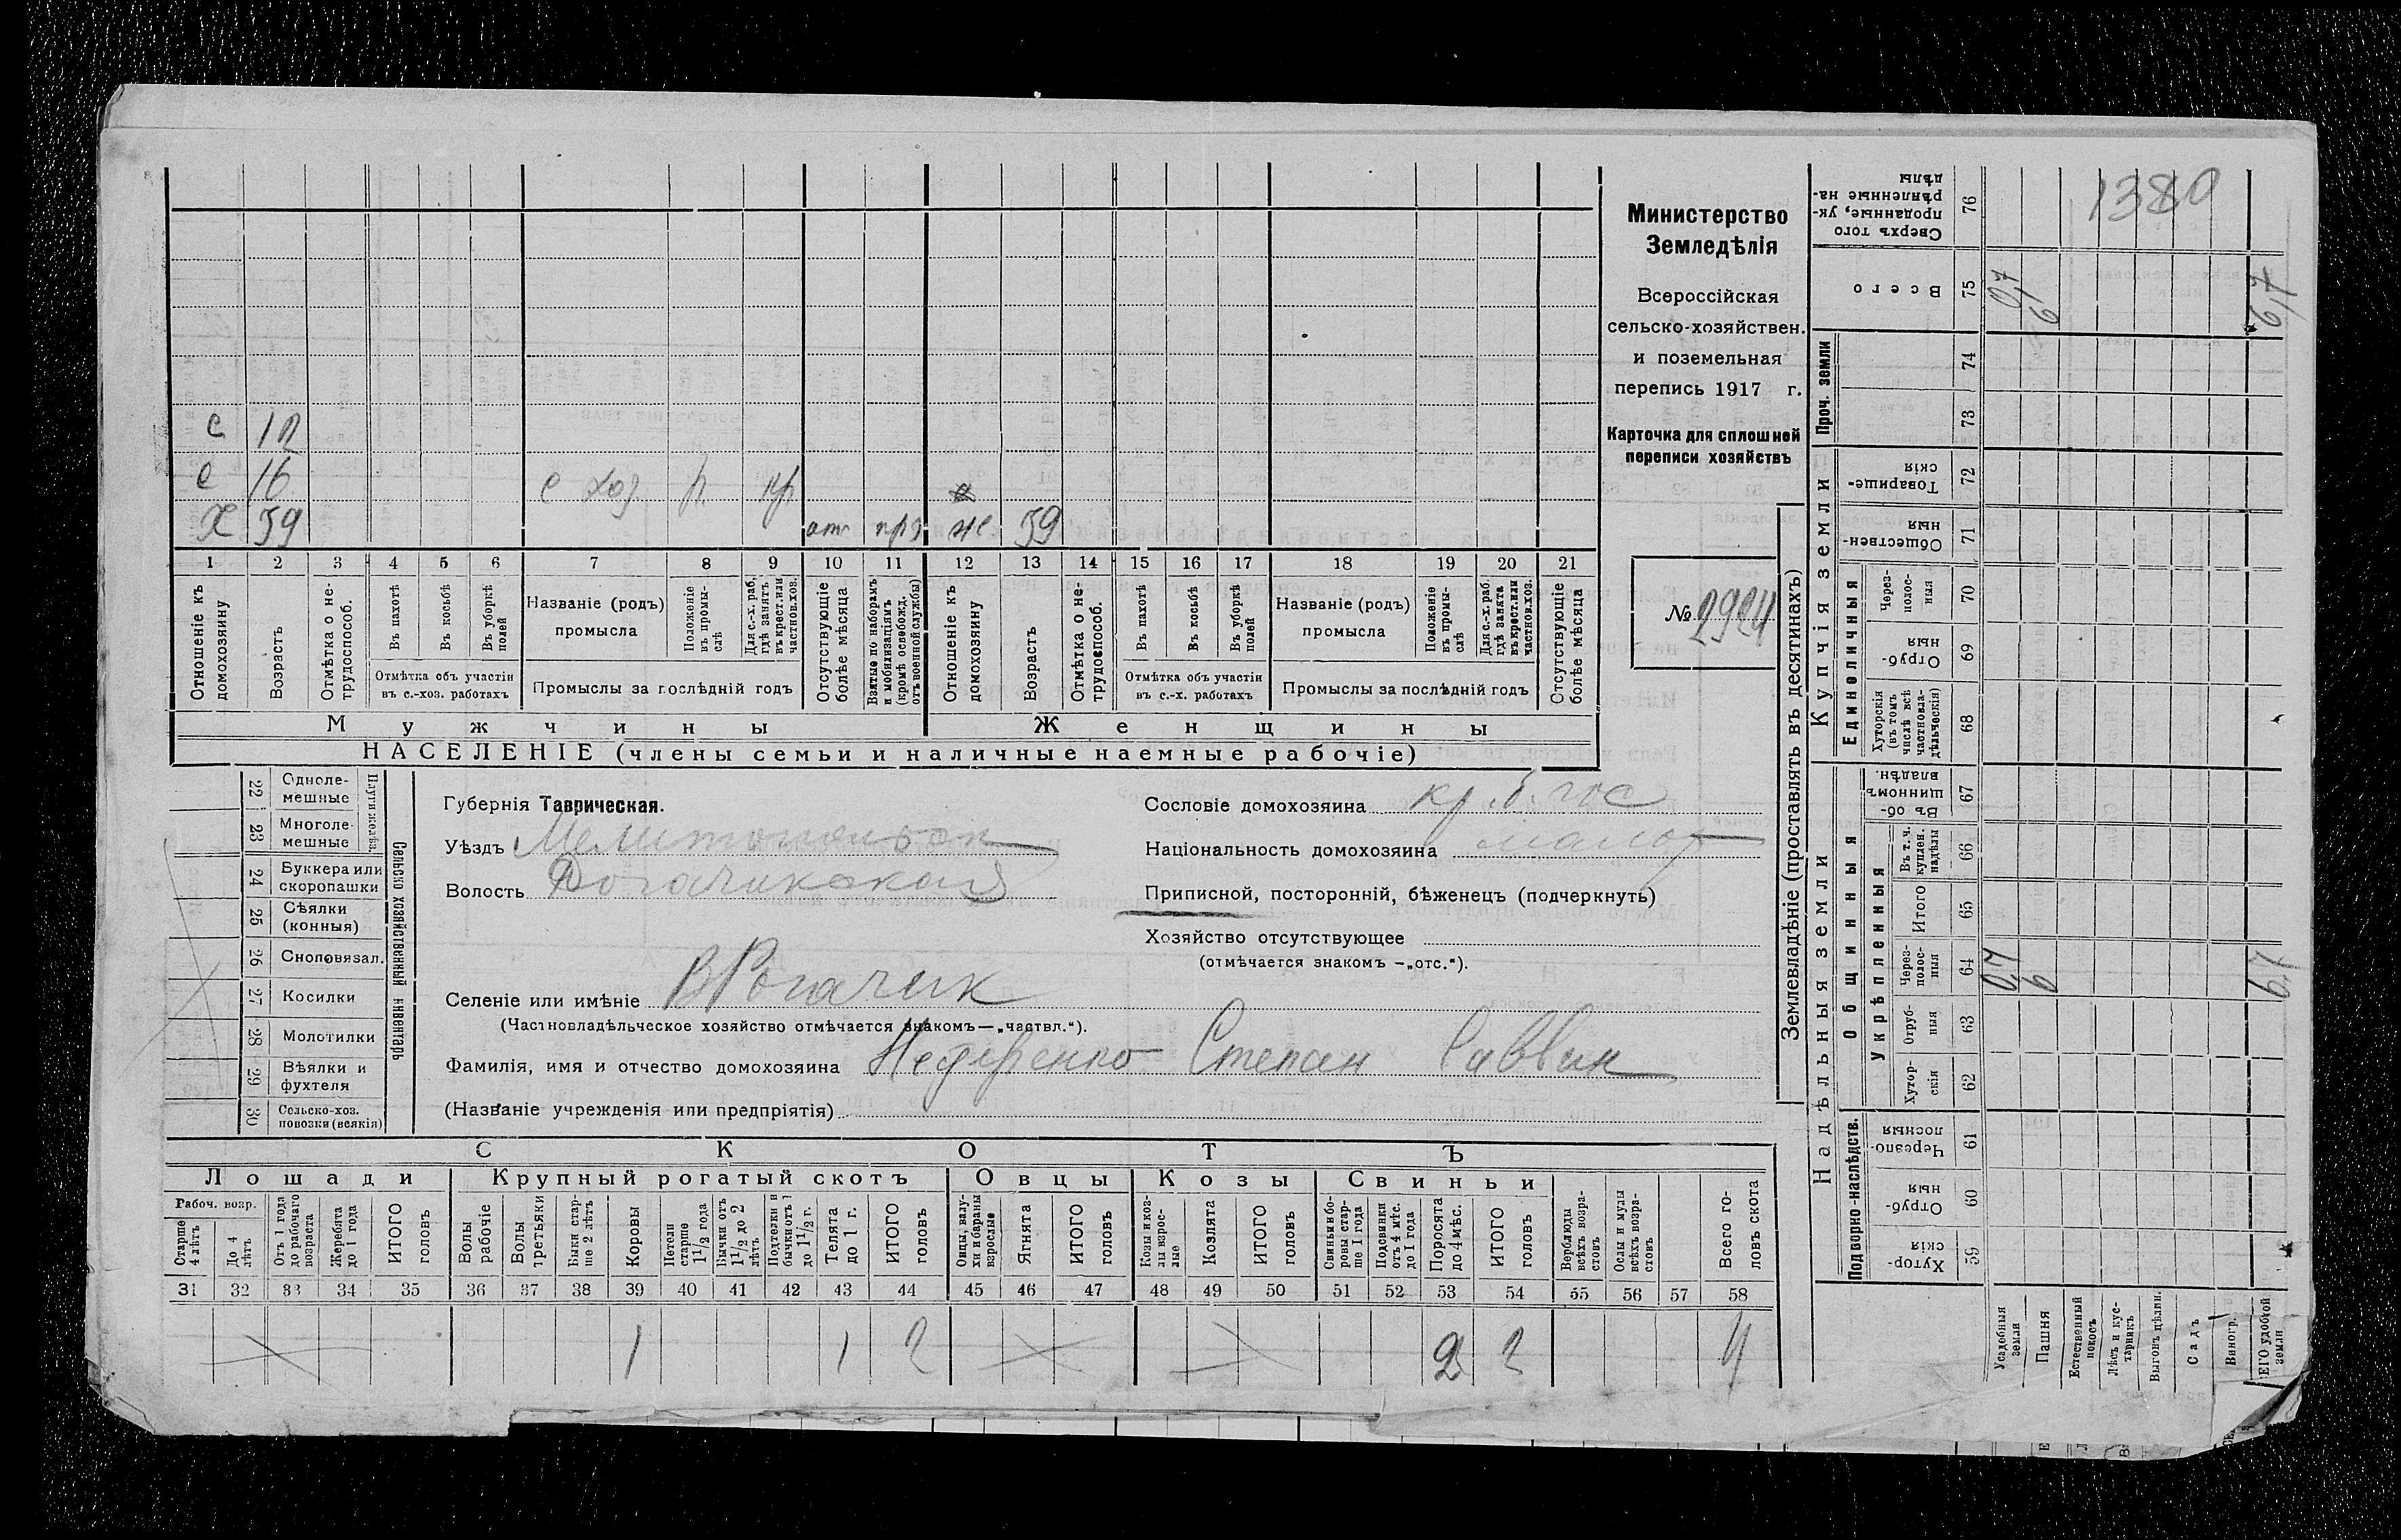 с 12
с 16 с хоз р кр
Х 39 от прз же 39
1 2 3 4 5 6 7 8 9 10 11 12 13 14 15 16 17 18 19 20 21
Отношеніе къ домохозяину
Возрастъ
Отмѣтка о не-трудоспособ.
Въ пахотѣ
Въ косьбѣ
Въ уборкѣ полей
Отмѣтка объ участіи
въ с.-хоз. работахъ
Названіе (родъ)
промысла
Положеніе въ промы-слѣ
Для с.-х. раб. гдѣ занятъ въ крест. или частнов. хоз.
Промыслы за послѣдній годъ
Отсутствующіе болѣе мѣсяца
Взятые по наборамъ и мобилизаціямъ (кромѣ освобожд. отъ военной службы)
Отношеніе къ домохозяину
Возрастъ
Отмѣтка о не-трудоспособ.
Въ пахотѣ
Въ косьбѣ
Въ уборкѣ полей
Отмѣтка объ участіи
въ с.-х. работахъ
Названіе (родъ)
промысла
Положеніе въ промы-слѣ
Для с.-х. раб. гдѣ занята въ крест. или частнов. хоз.
Промыслы за послѣдній годъ
Отсутствующіе болѣе мѣсяца
Мужчины
Женщины
НАСЕЛЕНІЕ (члены семьи и наличные наемные рабочіе)
Министерство
Земледѣлія
Всероссійская
сельско-хозяйствен.
и поземельная
перепись 1917 г.
Карточка для сплошной
переписи хозяйствъ
№ 2924
22 Одноле-мешные
23 Многоле-мешные
Плуги желѣз.
24 Буккера или скоропашки
25 Сѣялки (конныя)
26 Сноповязал.
27 Косилки
28 Молотилки
29 Вѣялки и фухтеля
30 Сельско-хоз. повозки (всякія)
Сельско хозяйственный инвентарь
Губернія Таврическая.
Уѣздъ Мелитопольск
Волость Рогачикская
Селеніе или имѣніе В Рогачик
(Частновладѣльческое хозяйство отмѣчается знакомъ—„частвл.“).
Фамилія, имя и отчество домохозяина Степан Саввич
(Названіе учрежденія или предпріятія)
Сословіе домохозяина кр. б. гос
Національность домохозяина малор
Приписной, посторонній, бѣженецъ (подчеркнуть)
Хозяйство отсутствующее
(отмѣчается знакомъ —„отс.“).
СКОТЪ
Лошади
Крупный рогатый скотъ
Овцы
Козы
Свиньи
Рабоч. возр.
Старше 4 лѣтъ
До 4 лѣтъ
Отъ 1 года до рабочаго возраста
Жеребята до 1 года
ИТОГО головъ
Волы рабочіе
Волы третьяки
Быки стар-ше 2 лѣтъ
Коровы
Нетели старше 1 1/2 года
Бычки отъ 1 1/2 до 2 лѣтъ
Подтелки и бычки отъ 1 до 1 1/2 г.
Телята до 1 г.
ИТОГО головъ
Овцы, валу-хи и бараны взрослые
Ягнята
ИТОГО головъ
Козы и коз-лы взрос-лые
Козлята
ИТОГО головъ
Свиньи и бо-ровы стар-ше 1 года
Подсвинки отъ 4 мѣс. до 1 года
Поросята до 4 мѣс.
ИТОГО головъ
Верблюды всѣхъ возра-стовъ
Ослы и мулы всѣхъ возра-стовъ
Всего го-ловъ скота
31 32 33 34 35 36 37 38 39 40 41 42 43 44 45 46 47 48 49 50 51 52 53 54 55 56 57 58
1 1 2 2 2 4
Землевладѣніе (проставлять въ десятинахъ)
Надѣльныя земли
Купчія земли
Проч. земли
Подворно-наслѣдств.
Общинныя
Укрѣпленныя
Единоличныя
Хутор-скія 59
Отруб-ныя 60
Черезпо-лосныя 61
Хутор-скія 62
Отруб-ныя 63
Через-полос-ныя 64
Итого 65
Въ т. ч. куплен. надѣлы 66
Въ об-щинномъ владѣн. 67
Хуторскія (въ томъ числѣ всѣ частновла-дѣльческія) 68
Отруб-ныя 69
Через-полос-ныя 70
Обществен-ныя 71
Товарище-скія 72
73
74
Всего 75
Сверхъ того проданные, ук-рѣпленные на-дѣлы 76
Усадебныя земли
Пашня
Естественный покосъ
Лѣсъ и кус-тарникъ
Выгонъ цѣлин.
Садъ
Виногр.
ЕГО удобной земли
0,7
6
6,7
0,7
6
6,7
1380